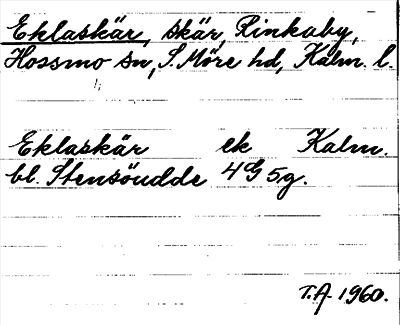 Eklaskär, skär, Rinkaby,
Hossmo sn, S. Möre hd, Kalm. l.
Eklaskär ek Kalm.
bl. Stensöudde 4G 5g.
T.A. 1960.